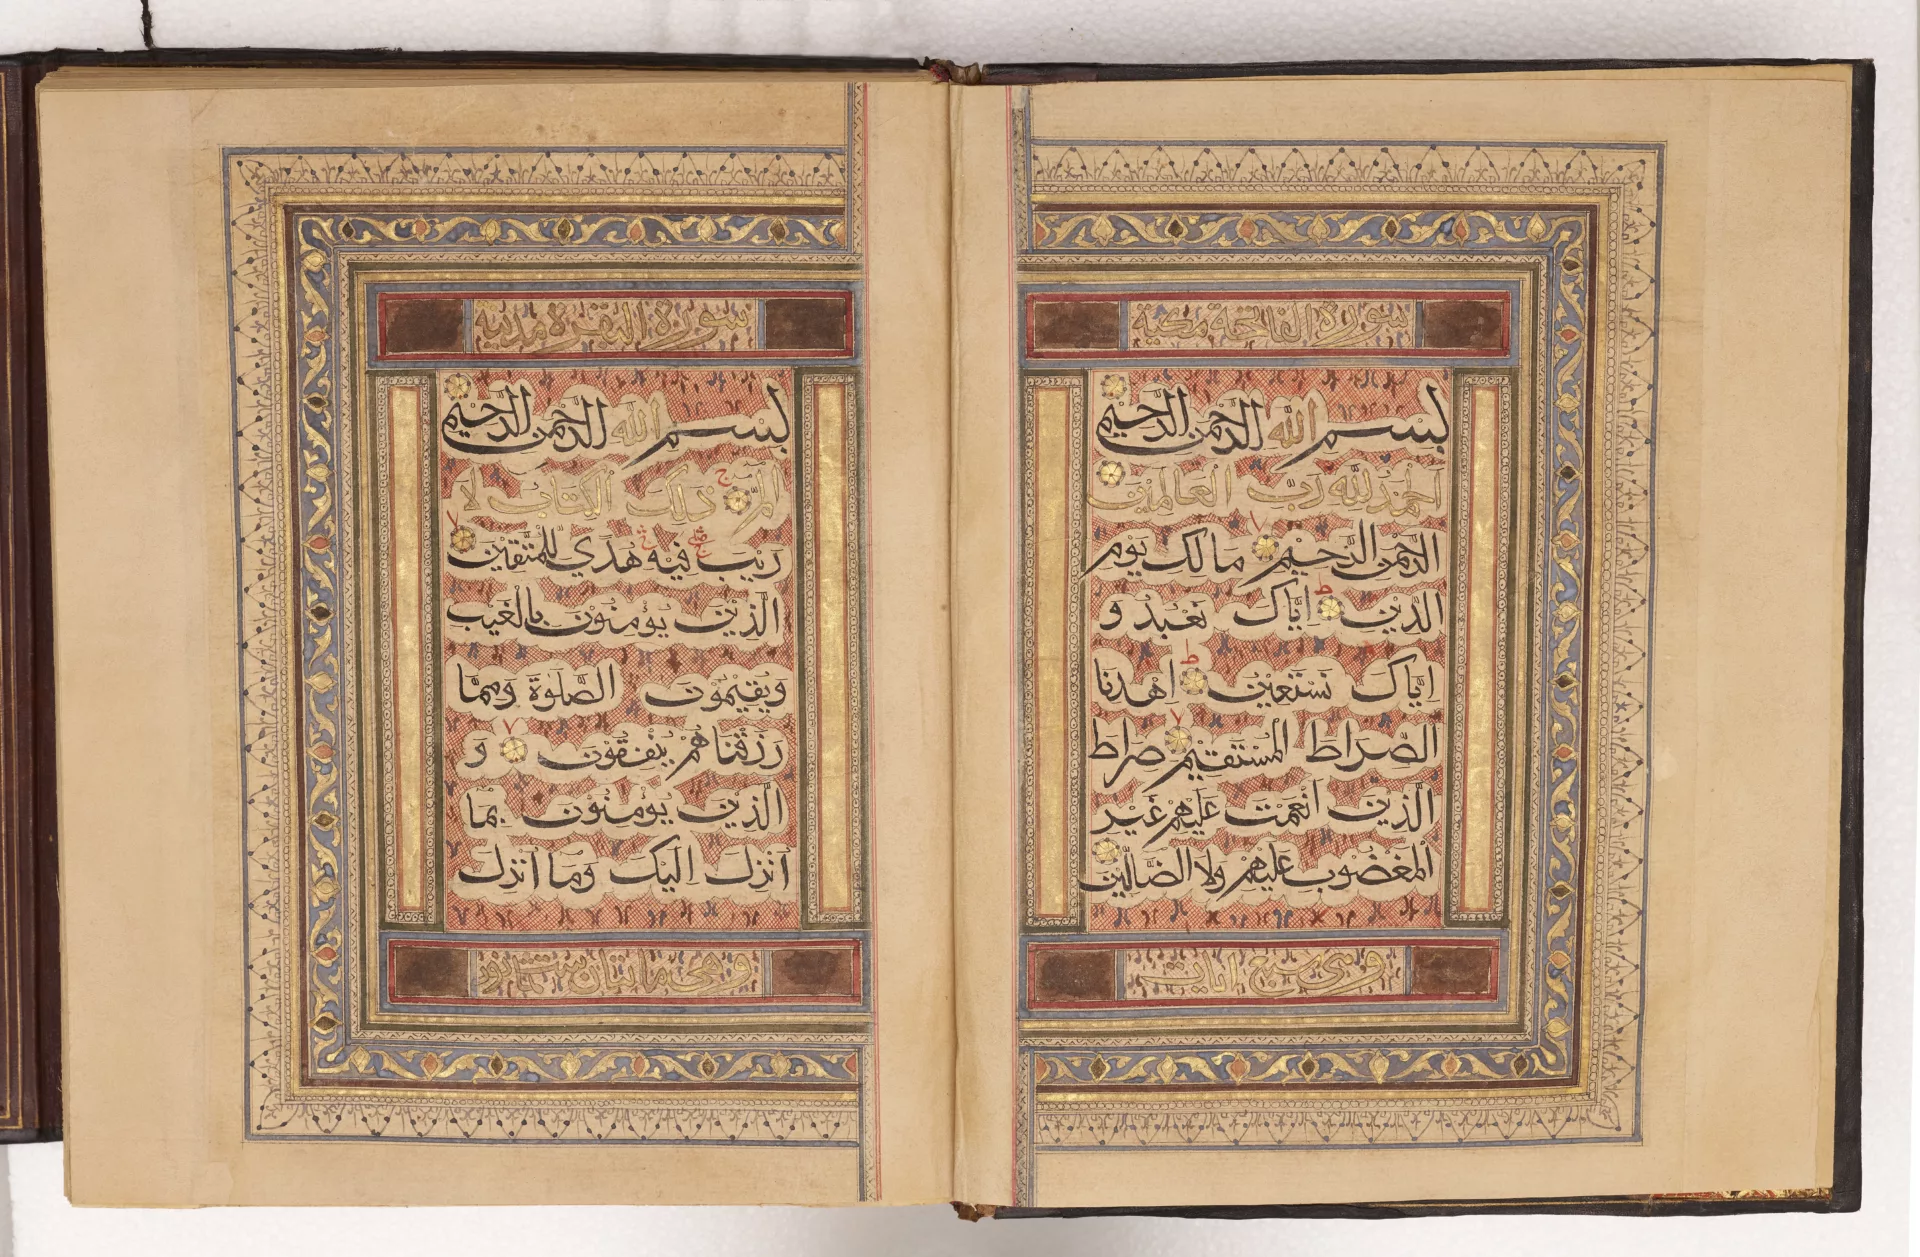 سورة الفاتحة مكية
بسم الله الرحمن الرحيم
الحمد لله رب العالمين
الرحمن الرحيم مالك يوم
الدين اياك نعبد و
اياك نستعين اهدنا
الصراط المستقيم صراط
الذين انعمت عليهم غير
المغضوب عليهم ولا الضالين
وهي سبع ايات
سورة البقرة مدنية
بسم الله الرحمن الرحيم
الم ذلك الكتاب لا
ريب فيه هدي للمتقين
الذين يؤمنون بالغيب
ويقيمون الصلوة ومما
رزقناهم ينفقون و
الذين يؤمنون بما
انزل اليك وما انزل
وهي مايتان